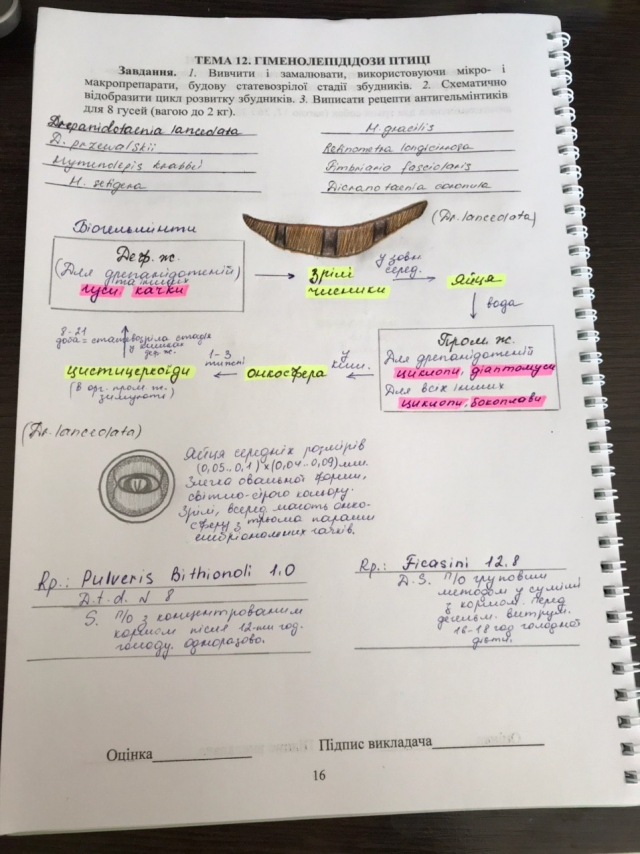 ТЕМА 12. ГІМЕНОЛЕПІДІДОЗИ ПТИЦІ
Завдання. 1. Вивчити і замалювати, використовуючи мікро- і
макропрепарати, будову статевозрілої стадії збудників. 2. Схематично
відобразити цикл розвитку збудників. 3. Виписати рецепти антигельмінтиків
для 8 гусей (вагою до 2 кг).
Drepanidotaenia lanceolata
H. gracilis
D. przewalskii
Retinometra longicirrova
Hymenolepis krabbei
Fimbriaria fasciolaris
H. setigera
Dicranotaenia coronula
(Dr. lanceolata)
Біогельмінти
Деф. ж.
(Для дрепанідотеній)
та інших
гуси, качки
Зрілі
членики
у зовн.
серед.
Яйця
вода
Пром. ж.
Для дрепанідотеній
циклопи, діаптомуси
Для всіх інших
циклопи, бокоплави
у
киш.
онкосфера
1-3
тижні
цистицеркоїди
(в орг. пром. ж.
зимують)
8-21
доба = статевозріла стадія
у кишках
деф. ж.
(Dr. lanceolata)
Яйця середніх розмірів
(0,05..0,1)×(0,04..0,09) мм.
Злегка овальної форми,
світло-сірого кольору.
Зрілі, всеред. мають онко-
сферу з трьома парами
ембріональних гачків.
Rp.: Pulveris Bithionoli 1.0
D.t.d. N 8
S. П/о з концентрованим
кормом після 12-ти год.
голоду одноразово.
Rp.: Ficasini 12.8
D.S. П/о груповим
методом у суміші
з кормом. Перед
дегельм. витрим.
16-18 год голодної
дієти.
Оцінка____________ Підпис викладача____________
16